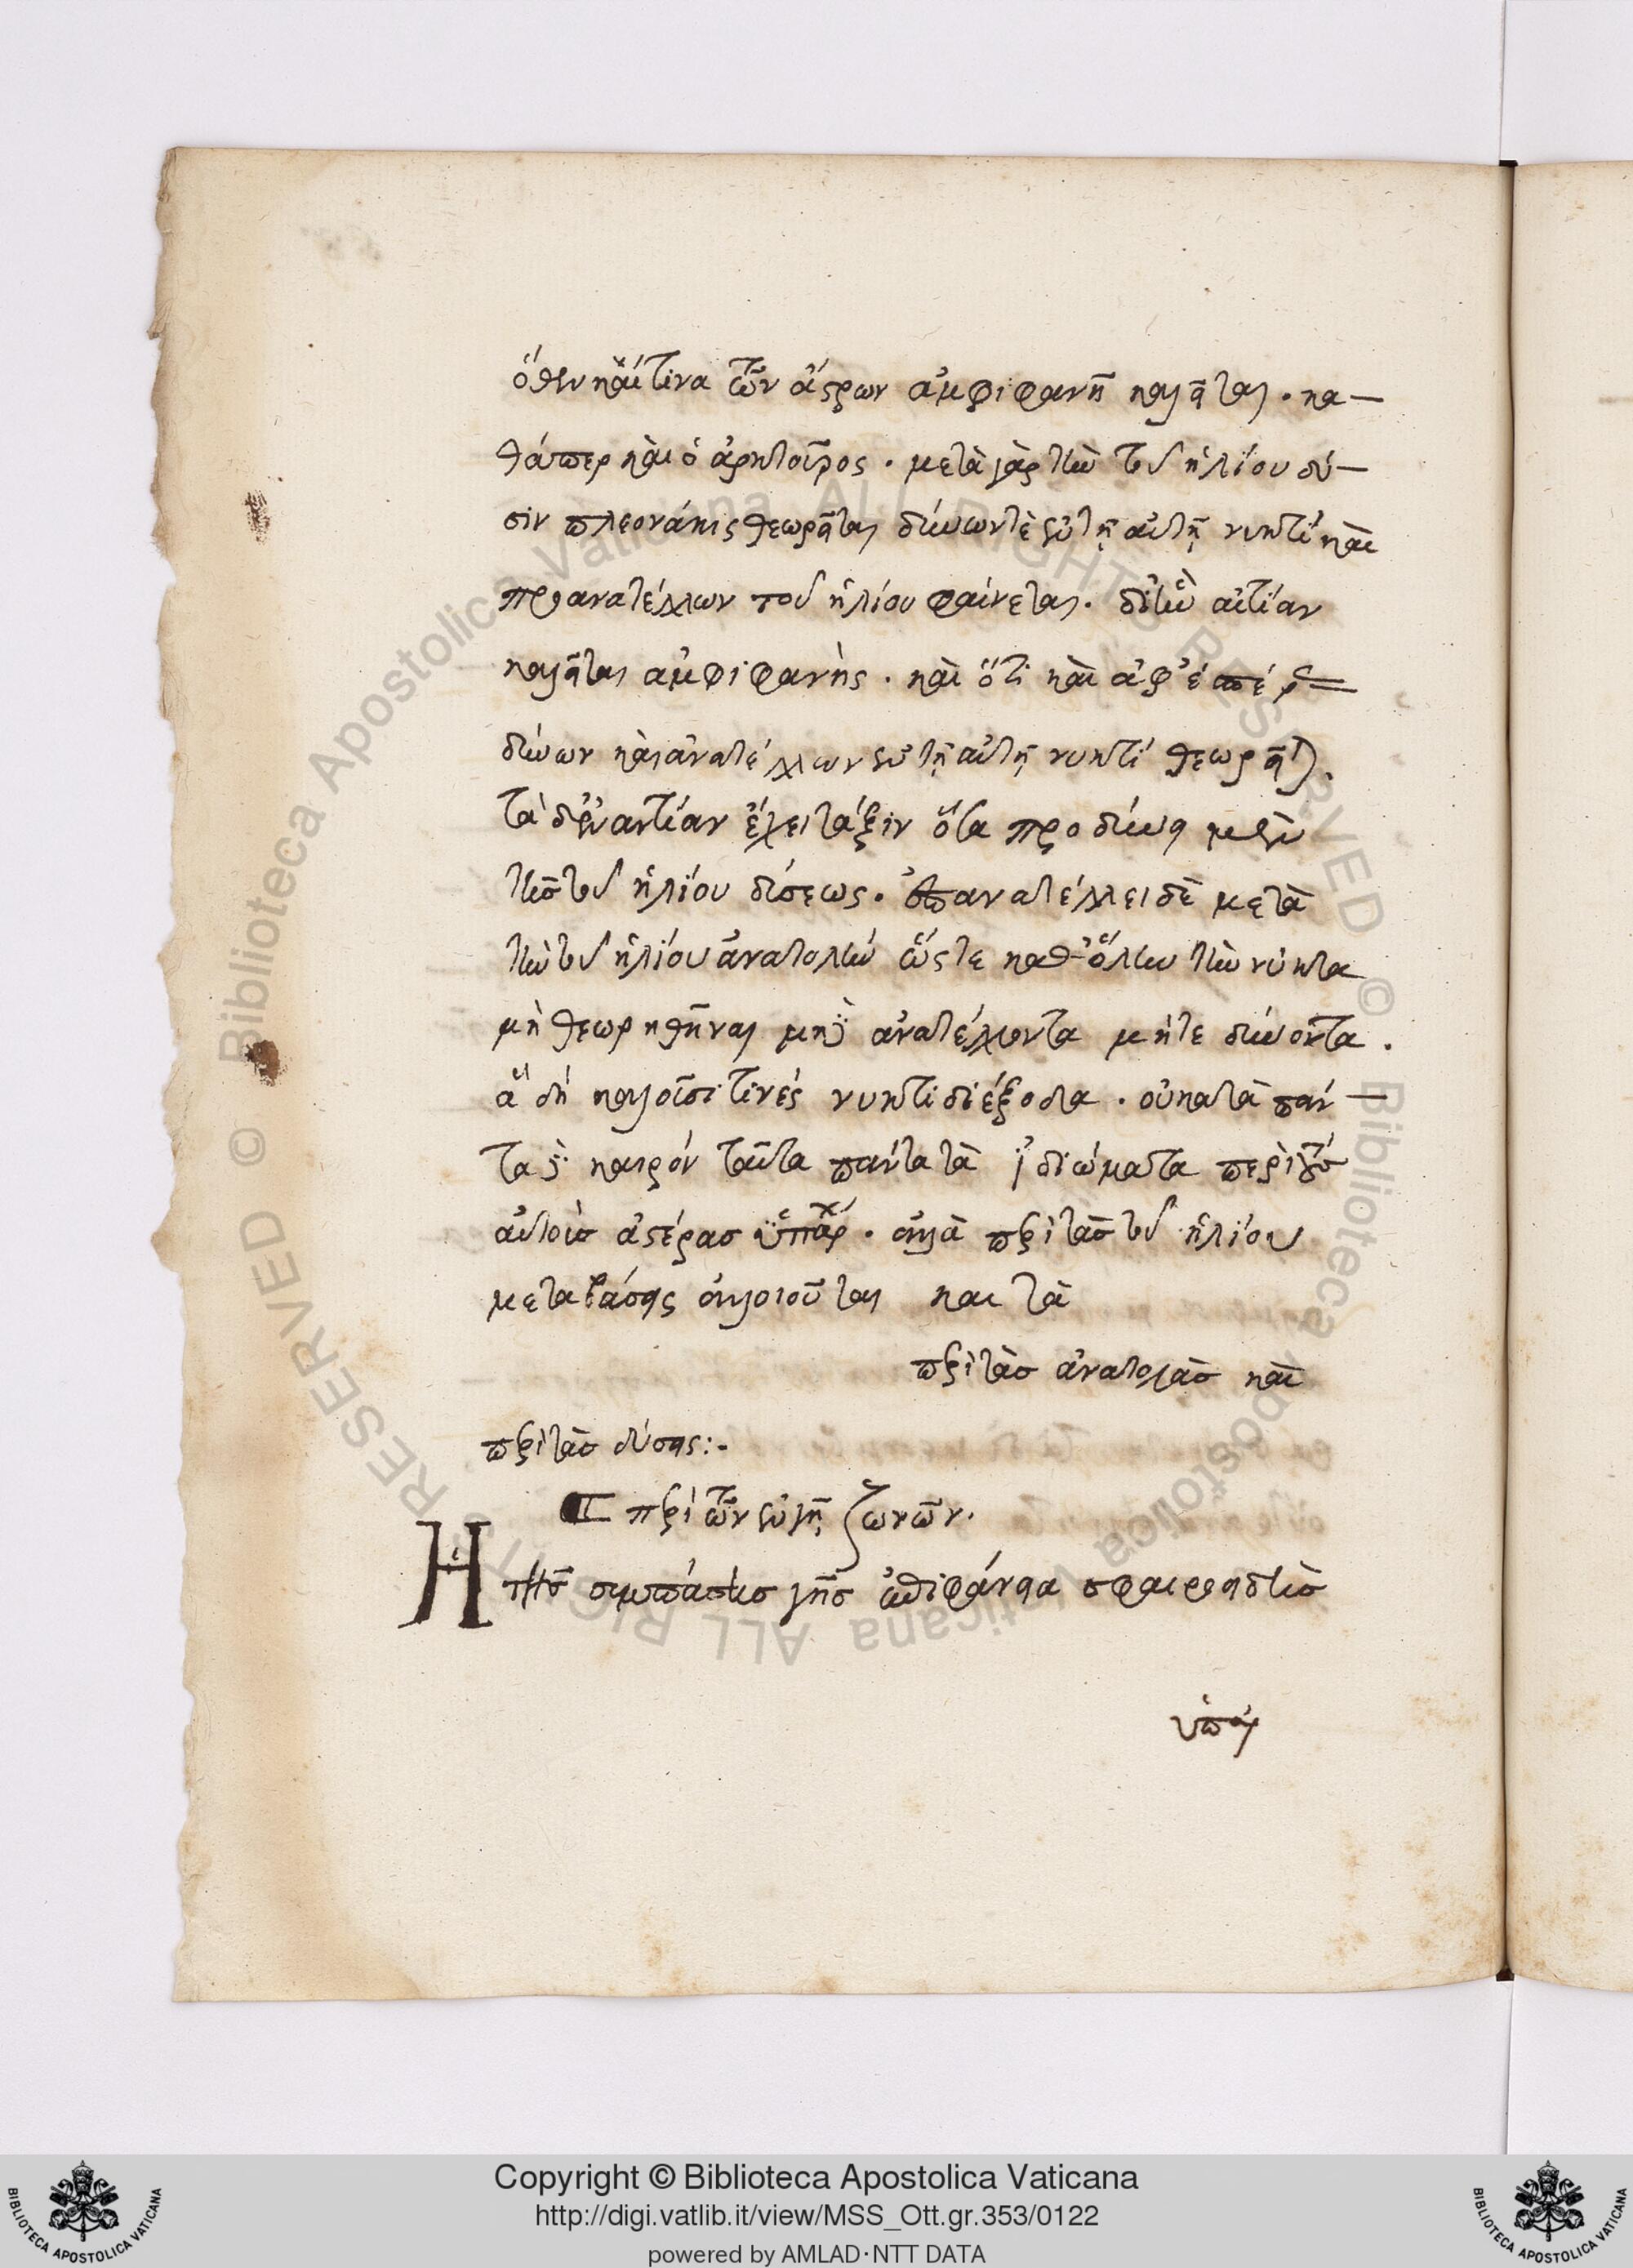 ὅθεν καί τινα τῶν ἄστρων ἀμφιφανῆ καλεῖται · κα—
θάπερ καὶ ὁ ἀρκτοῦρος · μετὰ γὰρ τὴν τοῦ ἡλίου δύ—
σιν πλεονάκις θεωρεῖται δύνων τε ἐν τῇ αὐτῇ νυκτί καὶ
προανατέλλων τοῦ ἡλίου φαίνεται · δι' ἣν αἰτίαν
καλεῖται ἀμφιφανὴς · καὶ ὅτι καὶ ἀφ' ἑσπέρ
δύνων καὶ ἀνατέλλων ἐν τῇ αὐτῇ νυκτί θεωρεῖται.
τὰ δ' ἐναντίαν ἔχει τάξιν ὅτα προδύνει μὲν
τῆς τοῦ ἡλίου δύσεως · ἐπανατέλλει δὲ μετὰ
τὴν τοῦ ἡλίου ἀνατολὴν ὥστε καθ' ὅλην τὴν νύκτα
μὴ θεωρηθῆναι μήτε ἀνατέλλοντα μήτε δύνοντα .
ἃ δή καλοῦσί τινές νυκτιδιέξοδα · οὐ κατὰ πάν—
τα δὲ καιρόν ταῦτα πάντα τὰ ἰδιώματα περὶ τοὺς
αὐτοὺς ἀστέρας ὑπάρχ · ἀλλὰ περὶ τὰς τοῦ ἡλίου
μεταβάσεις ἀλλοιοῦται και τὰ
περὶ τὰς ἀνατολὰς καὶ
περὶ τὰς δύσεις :.
περὶ τῶν ἐν γῇ ζωνῶν.
Ἡ τῆς συμπάσης γῆς ἐπιφάνεια σφαιροειδὴς
ὑπάρ
Copyright © Biblioteca Apostolica Vaticana
http://digi.vatlib.it/view/MSS_Ott.gr.353/0122
powered by AMLAD·NTT DATA
BIBLIOTECA APOSTOLICA VATICANA
BIBLIOTECA APOSTOLICA VATICANA
© Biblioteca Apostolica Vaticana ALL RIGHTS RESERVED © Biblioteca Apostolica Vaticana ALL RIGHTS RESERVED